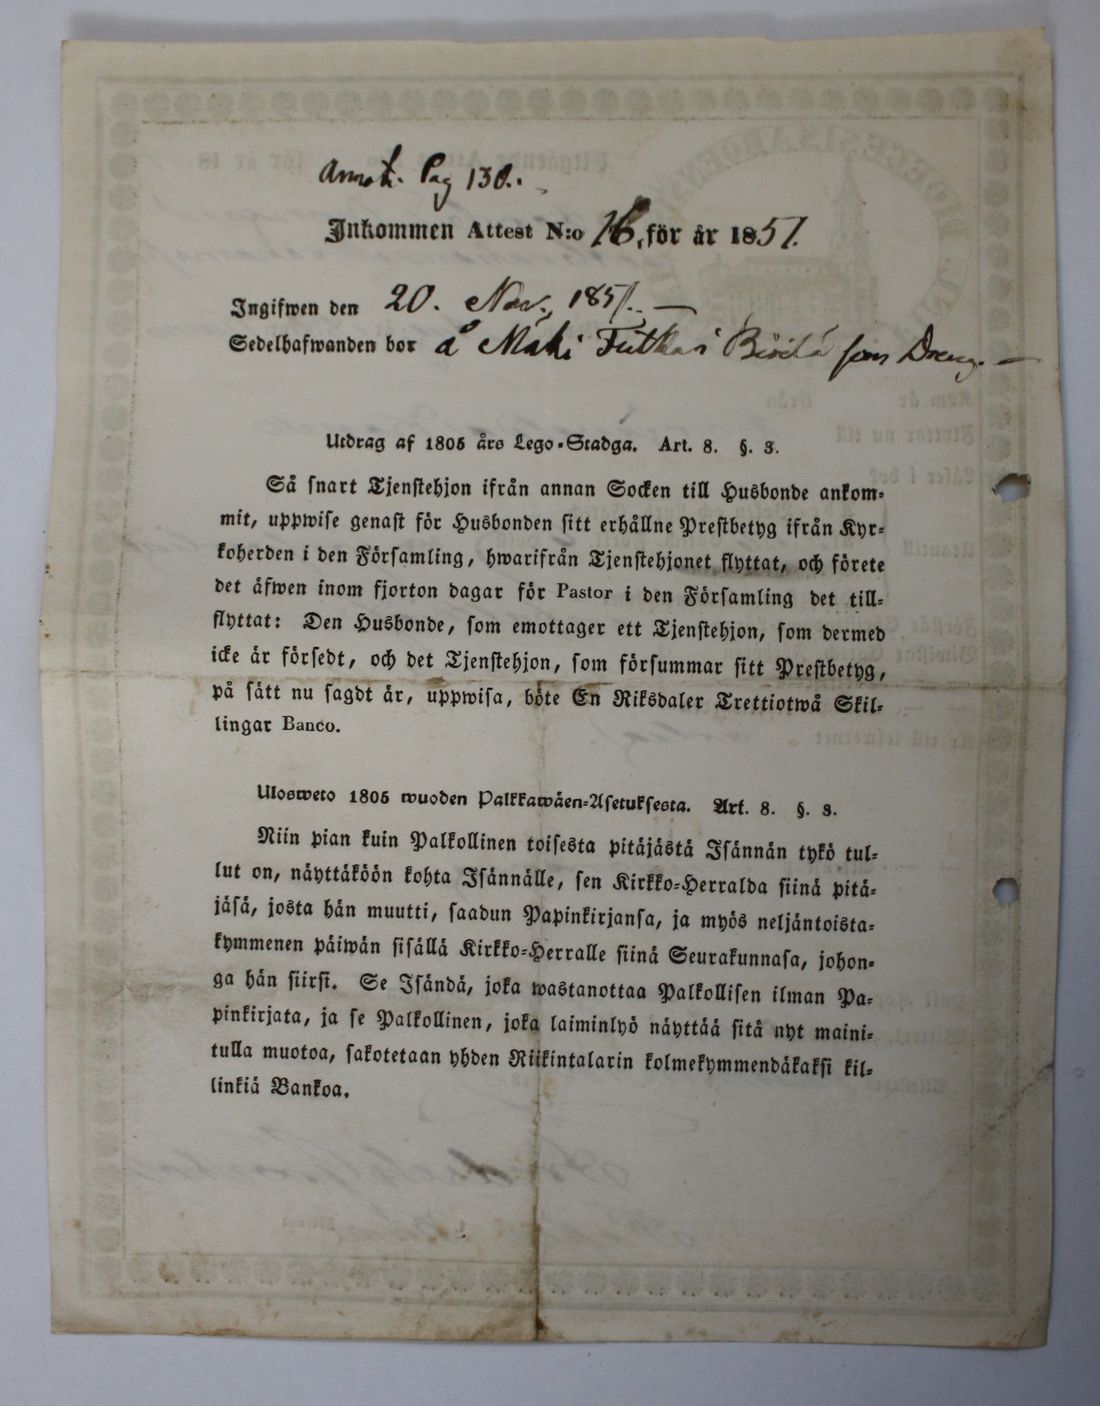 Pag 130.
Inkommen Attest N:o för år 1851.
Ingifwen den 20. Nov. 1851.
Sedelhafwanden bor å Mäki som Dreng.
Utdrag af 1805 års Lego-Stadga. Art. 8. §. 3.
Så snart Tjenstehjon ifrån annan Socken till Husbonde ankom-
mit, uppwise genast för Husbonden sitt erhållne Prestbetyg ifrån Kyr-
koherden i den Församling, hwarifrån Tjenstehjonet flyttat, och förete
det äfwen inom fjorton dagar för Pastor i den Församling det till-
flyttat: Den Husbonde, som emottager ett Tjenstehjon, som dermed
icke är försedt, och det Tjenstehjon, som försummar sitt Prestbetyg,
på sätt nu sagdt är, uppwisa, böte En Riksdaler Trettiotwå Skil-
lingar Banco.
Ulosweto 1805 wuoden Palkkawäen-Asetuksesta. Art. 8. §. 3.
Niin pian kuin Palkollinen toisesta pitäjästä Isännän tykö tul-
lut on, näyttäköön kohta Isännälle, sen Kirkko-Herralda siinä pitä-
jäsä, josta hän muutti, saadun Papinkirjansa, ja myös neljäntoista-
kymmenen päiwän sisällä Kirkko-Herralle siinä Seurakunnasa, johon-
ga hän siirsi. Se Isändä, joka wastanottaa Palkollisen ilman Pa-
pinkirjata, ja se Palkollinen, joka laiminlyö näyttää sitä nyt maini-
tulla muotoa, sakotetaan yhden Riikintalarin kolmekymmendäkaksi kil-
linkiä Bankoa.